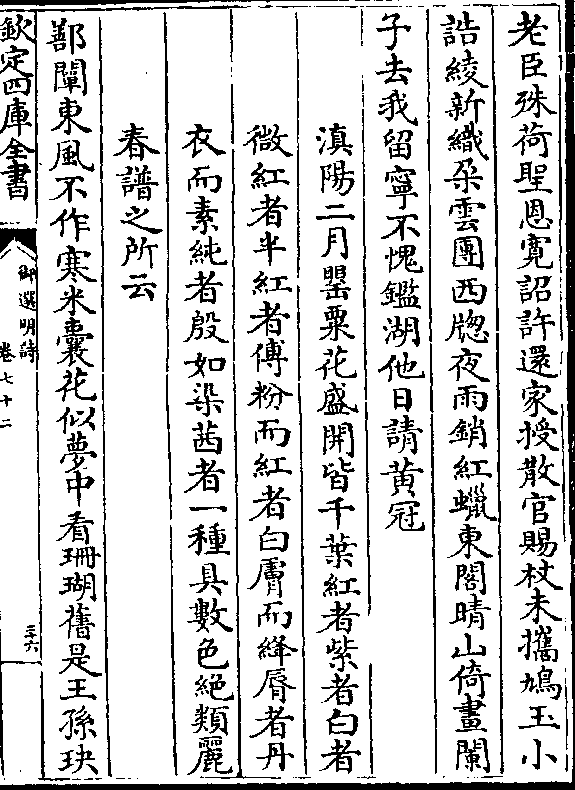 老臣殊荷聖恩寛詔許還家授散官賜杖未攜鳩玉小
誥綾新織朶雲團西牕夜雨銷紅蠟東閣晴山倚畫闌
子去我留寧不愧鑑湖他日請黄冠
滇陽二月罌粟花盛開皆千葉紅者紫者白者
微紅者半紅者傅粉而紅者白膚而絳脣者丹
衣而素純者殷如染茜者一種具數色絶類麗
春譜之所云
鄯闡東風不作寒米囊花似夢中看珊瑚舊是王孫玦
欽定四庫全書
御選明詩
卷七十二
三六